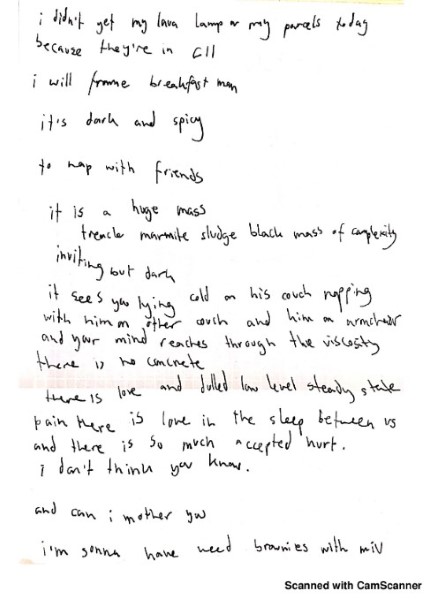 i didn't get my lava lamp or my parcels today
because they're in C11
i will frame breakfast man
it's dark and spicy
to nap with friends
it is a huge mass
treacle marmite sludge black mass of complexity
inviting but dark
it sees you lying cold on his couch napping
with him on other couch and him on armchair
and your mind reaches through the viscosity
there is no concrete
there is love and dulled low level steady state
pain there is love in the sleep between us
and there is so much accepted hurt.
i don't think you know.
and can i mother you
i'm gonna have weed brownies with miv
Scanned with CamScanner